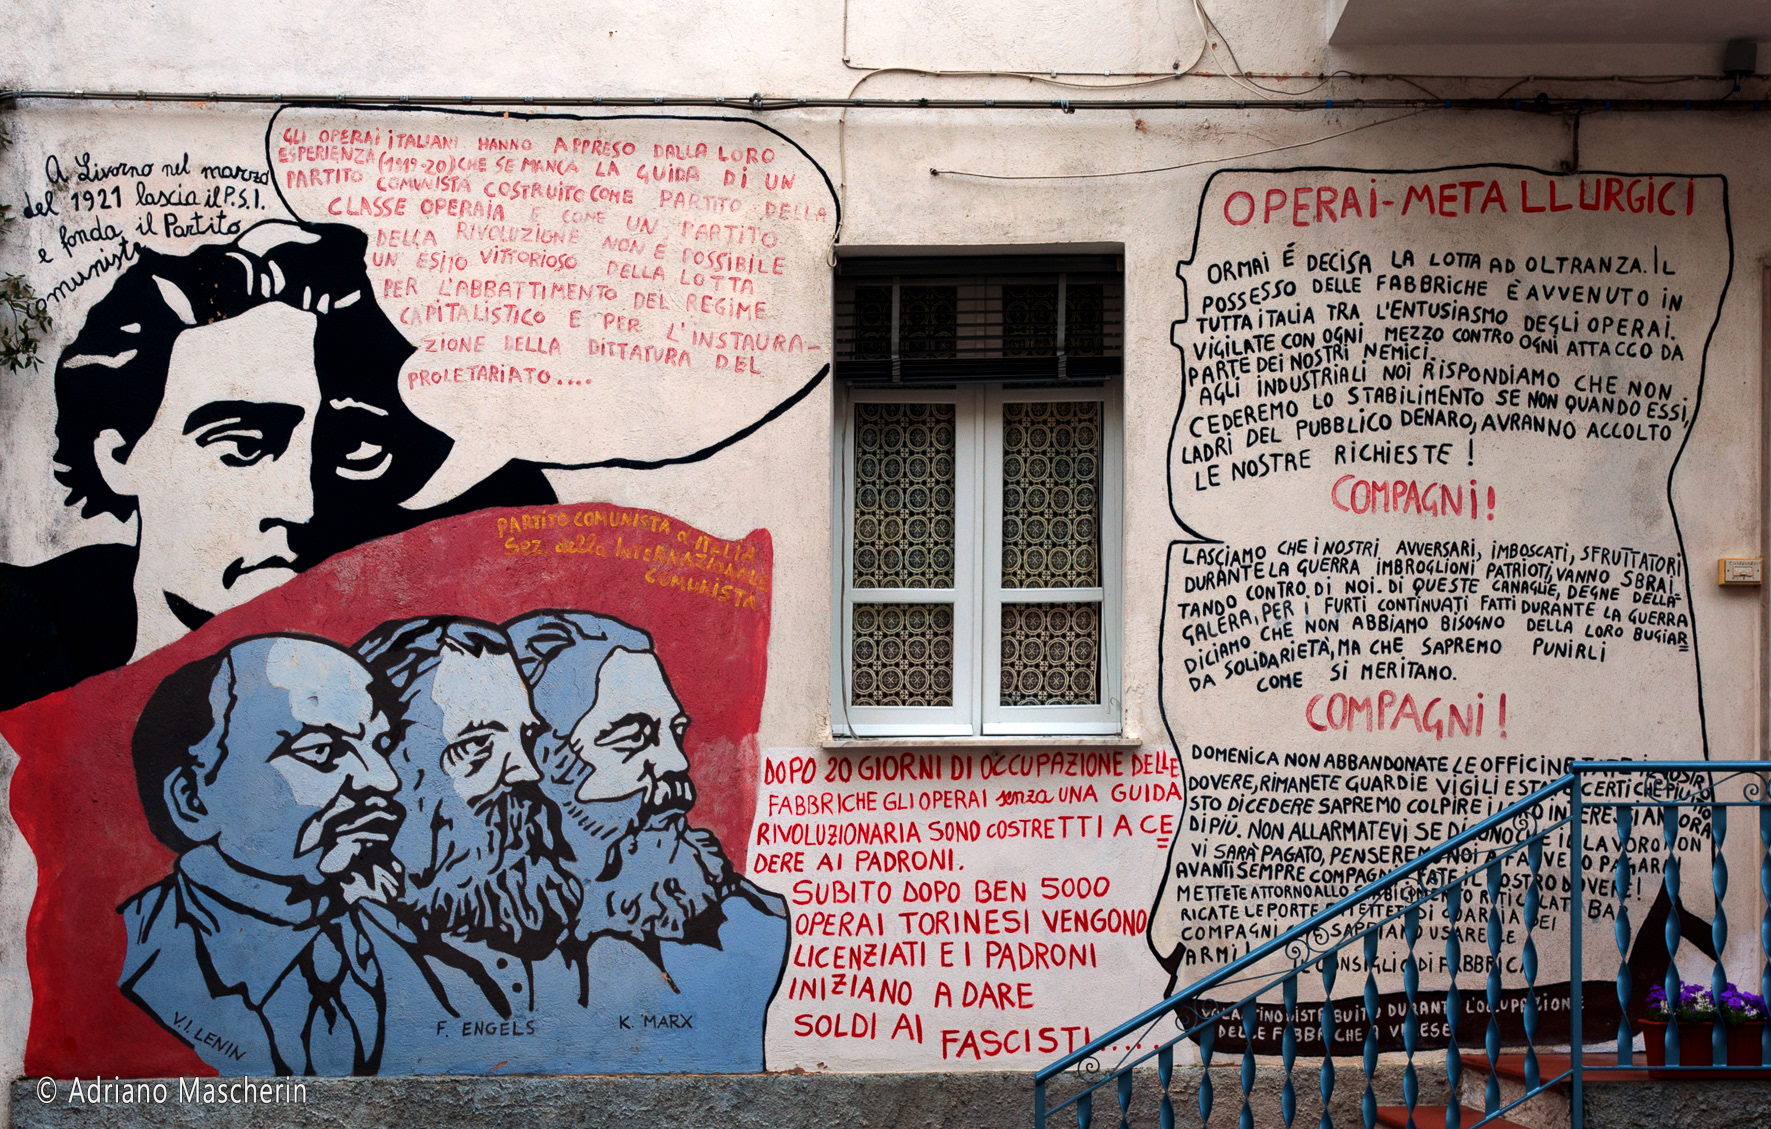 A Livorno nel marzo
del 1921 lascia il P.S.I.
e fonda il Partito
omunista
GLI OPERAI ITALIANI HANNO APPRESO DALLA LORO
ESPERIENZA (1919-20) CHE SE MANCA LA GUIDA DI UN
PARTITO COMUNISTA COSTRUITO COME PARTITO DELLA
CLASSE OPERAIA E COME UN PARTITO
DELLA RIVOLUZIONE NON É POSSIBILE
UN ESITO VITTORIOSO DELLA LOTTA
PER L'ABBATTIMENTO DEL REGIME
CAPITALISTICO E PER L'INSTAURA-
ZIONE DELLA DITTATURA DEL
PROLETARIATO....
PARTITO COMUNISTA d'ITALIA
Sez. della INTERNAZIONALE
COMUNISTA
V.I. LENIN
F. ENGELS
K. MARX
DOPO 20 GIORNI DI OCCUPAZIONE DELLE
FABBRICHE GLI OPERAI senza UNA GUIDA
RIVOLUZIONARIA SONO COSTRETTI A CE
DERE AI PADRONI.
SUBITO DOPO BEN 5000
OPERAI TORINESI VENGONO
LICENZIATI E I PADRONI
INIZIANO A DARE
SOLDI AI FASCISTI.....
OPERAI-METALLURGICI
ORMAI É DECISA LA LOTTA AD OLTRANZA. IL
POSSESSO DELLE FABBRICHE È AVVENUTO IN
TUTTA ITALIA TRA L'ENTUSIASMO DEGLI OPERAI.
VIGILATE CON OGNI MEZZO CONTRO OGNI ATTACCO DA
PARTE DEI NOSTRI NEMICI.
AGLI INDUSTRIALI NOI RISPONDIAMO CHE NON
CEDEREMO LO STABILIMENTO SE NON QUANDO ESSI,
LADRI DEL PUBBLICO DENARO, AVRANNO ACCOLTO
LE NOSTRE RICHIESTE!
COMPAGNI!
LASCIAMO CHE I NOSTRI AVVERSARI, IMBOSCATI, SFRUTTATORI
DURANTE LA GUERRA IMBROGLIONI PATRIOTI, VANNO SBRAI-
TANDO CONTRO DI NOI. DI QUESTE CANAGLIE, DEGNE DELLA
GALERA, PER I FURTI CONTINUATI FATTI DURANTE LA GUERRA
DICIAMO CHE NON ABBIAMO BISOGNO DELLA LORO BUGIAR
DA SOLIDARIETÀ, MA CHE SAPREMO PUNIRLI
COME SI MERITANO.
COMPAGNI!
DOMENICA NON ABBANDONATE LE OFFICINE
DOVERE, RIMANETE GUARDIE VIGILI E CERTI CHE PIUT
STO DI CEDERE SAPREMO COLPIRE I INTERESSI ANCORA
DI PIÙ. NON ALLARMATEVI SE DI IL LAVORO NON
VI SARÀ PAGATO, PENSEREMO NOI A FARVELO PAGARE
AVANTI SEMPRE COMPAGNI FATE IL VOSTRO DOVERE!
METTETE ATTORNO ALLO STABILIMENTO RETICOLATI BAR
RICATE LE PORTE METTETE DI GUARDIA DEI
COMPAGNI CHE SAPPIANO USARE LE
ARMI! IL CONSIGLIO DI FABBRICA
VOLANTINO DISTRIBUITO DURANTE L'OCCUPAZIONE
DELLE FABBRICHE A VARESE
© Adriano Mascherin